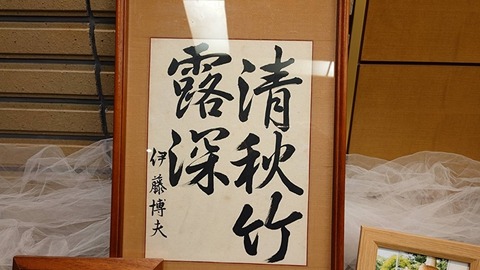 清秋竹
露深
伊藤博夫